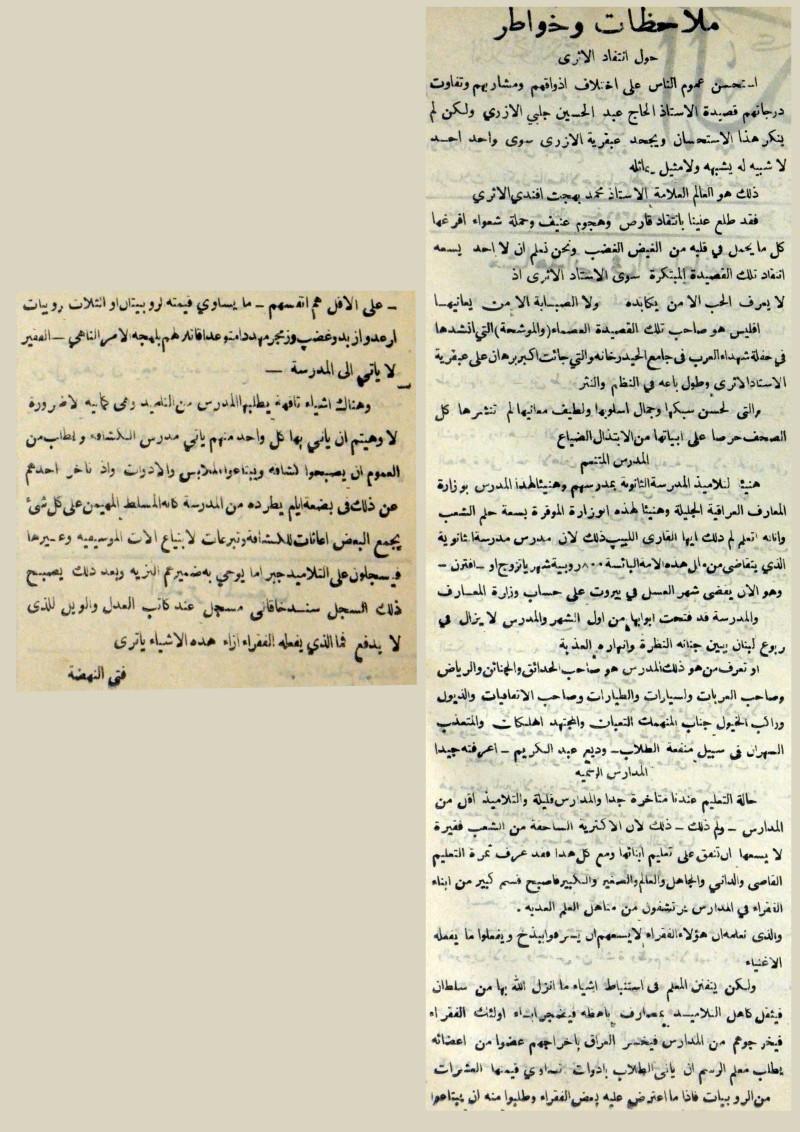 ملاحظات وخواطر
حول انتقاد الاثرى
استحسن عموم الناس على اختلاف اذواقهم ومشاربهم وتفاوت
درجاتهم قصيدة الاستاذ الحاج عبد الحسين جلبي الازري ولكن لم
ينكر هذا الاستحسان ويجحد عبقرية الازرى سوى واحد احد
لا شبيه له يشبهه ولامثيل يماثله
ذلك هو العالم العلامة الاستاذ محمد بهجت افندي الاثري
فقد طلع علينا بانتقاد قارص وهجوم عنيف وحملة شعواء افرغها
كل ما يحمل في قلبه من الغيض الغضب ونحن نعلم ان لا احد يسعه
انتقاد تلك القصيدة المبتكرة سوى الاستاد الاثرى اذ
لا يعرف الحب الا من يكابده ولا الصبابة الا من يعانيها
افليس هو صاحب تلك القصيدة العصماء (والموشحة) التي انشدها
في حفلة شهداء العرب فى جامع الحيدرخانه والتي جائت اكبر برهان على عبقرية
الاستاد الاثرى وطول باعه في النظم والنثر
والتى لحسن سبكها وجمال اسلوبها ولطيف معانيها لم تنشرها كل
الصحف حرصا على ابياتها من الابتذال الضياع
المدرس المتنعم
هنيئا لتلاميذ المدرسة الثانوية بمدرسهم وهنيئا لهذا المدرس بوزارة
المعارف العراقية الجليلة وهنيئا لهذه الوزارة الموقرة بسعة حلم الشعب
واناته اتعلم لم ذلك ايها القارى اللبيب ذلك لان مدرس مدرسة الثانوية
الذي يتقاضى من مال هذه الامه البائسة ٨٠٠ روبية شهريا تزوج او – اقترن –
وهو الان يقضى شهر العسل في بيروت على حساب وزارة المعارف
والمدرسة قد فتحت ابوابها من اول الشهر والمدرس لا يزال في
ربوع لبنان يبين جنانه النظرة وانهاره العذبة
او تعرف من هو ذلك المدرس هو صاحب الحدائق والجنائن والرياض
وصاحب العربات والسيارات والطيارات وصاحب الاتعاقيات والذيول
وراكب الخيول جناب المنهمك التعبان والمجتهد الهلكان والمتعذب
السهران فى سبيل منفعة الطلاب – وديع عبد الكريم – اعرفته جيدا
المدارس الرسميه
حالة التعليم عندنا متاخرة جدا والمدارس قليلة والتلاميذ اقل من
المدارس – ولم ذلك – ذلك لان الاكثرية الساحقة من الشعب فقيرة
لا يسعها ان تنفق على تعليم ابنائها ومع كل هذا فقد عرف ثمرة التعليم
القاصى والدانى والجاهل والعالم والصغير والكبير فاصبح قسم كبير من ابناء
الفقراء في المدارس يرتشفون من مناهل العلم العذبه .
والذى نعلمه ان هؤلاء الفقراء لا يسعهم ان يسرفوا ببذخ ويفعلوا ما يفعله
الاغنياء
ولكن يتفنن المعلم فى استنباط اشياء ما انزل الله بها من سلطان
فيثقل كاهل التلاميـذ بمصارف باهظه فيضجر ابناء اولئك الفقراء
فيخرجوهم من المدارس فيخسر العراق باخراجهم عضوا من اعضائه
يطلب معلم الرسم ان ياتى الطلاب بادوات تساوي قيمتها العشرات
من الروبيات فاذا ما اعترض عليه بعض الفقراء وطلبوا منه ان يبتاعوا
– على الاقل هم انفسهم – ما يساوي قيمته لروبيتان او الثلاث روبيات
ارعد وازبد وغضب وزمجر مهددا متوعدا قائلا لهم بلهجه الامر الناهي – الفقير
لا ياتي الى المدرسة –
وهناك اشياء تافهة يطلبها المدرس من التلميذ وهى كماليه لا ضرورة
لا وهيتم ان ياتي بها كل واحد منهم ياتي مدرس الكشافه ويطلب من
العموم ان يصبحوا كشافه ويبتاعوا الملابس والادوات واذ تاخر احدهم
عن ذلك فى بضعة ايام يطرده من المدرسة كانه المسلط المهيمن على كل شئ
يجمع البعض اعانات للكشافة وتبرعات لابتياع الات الموسيقيه وغيرها
فيسجلون على التلاميد جبرا ما يوحي به ضميرهم النزيه وبعد ذلك يصبح
ذلك السجل سند خاقانى مسجل عند كاتب العدل والويل للذى
لا يدفع فما الذي يفعله الفقراء ازاء هده الاشياء ياترى
فتى النهضة